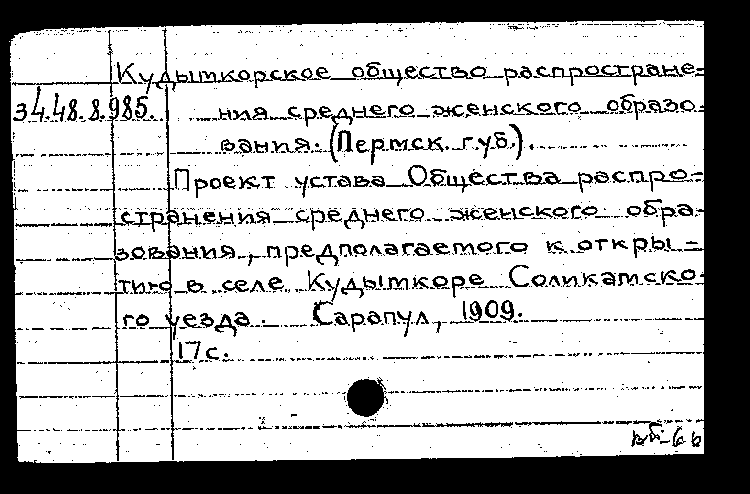 Кудымкорское общество распростране-
34.48.8.985. ния среднего женского образо-
вания. (Пермск. губ.).
Проект устава Общества распро-
странения среднего женского обра-
зования, предполагаемого к откры-
тию в селе Кудымкоре Соликамско-
го уезда. Сарапул, 1909.
17 с.